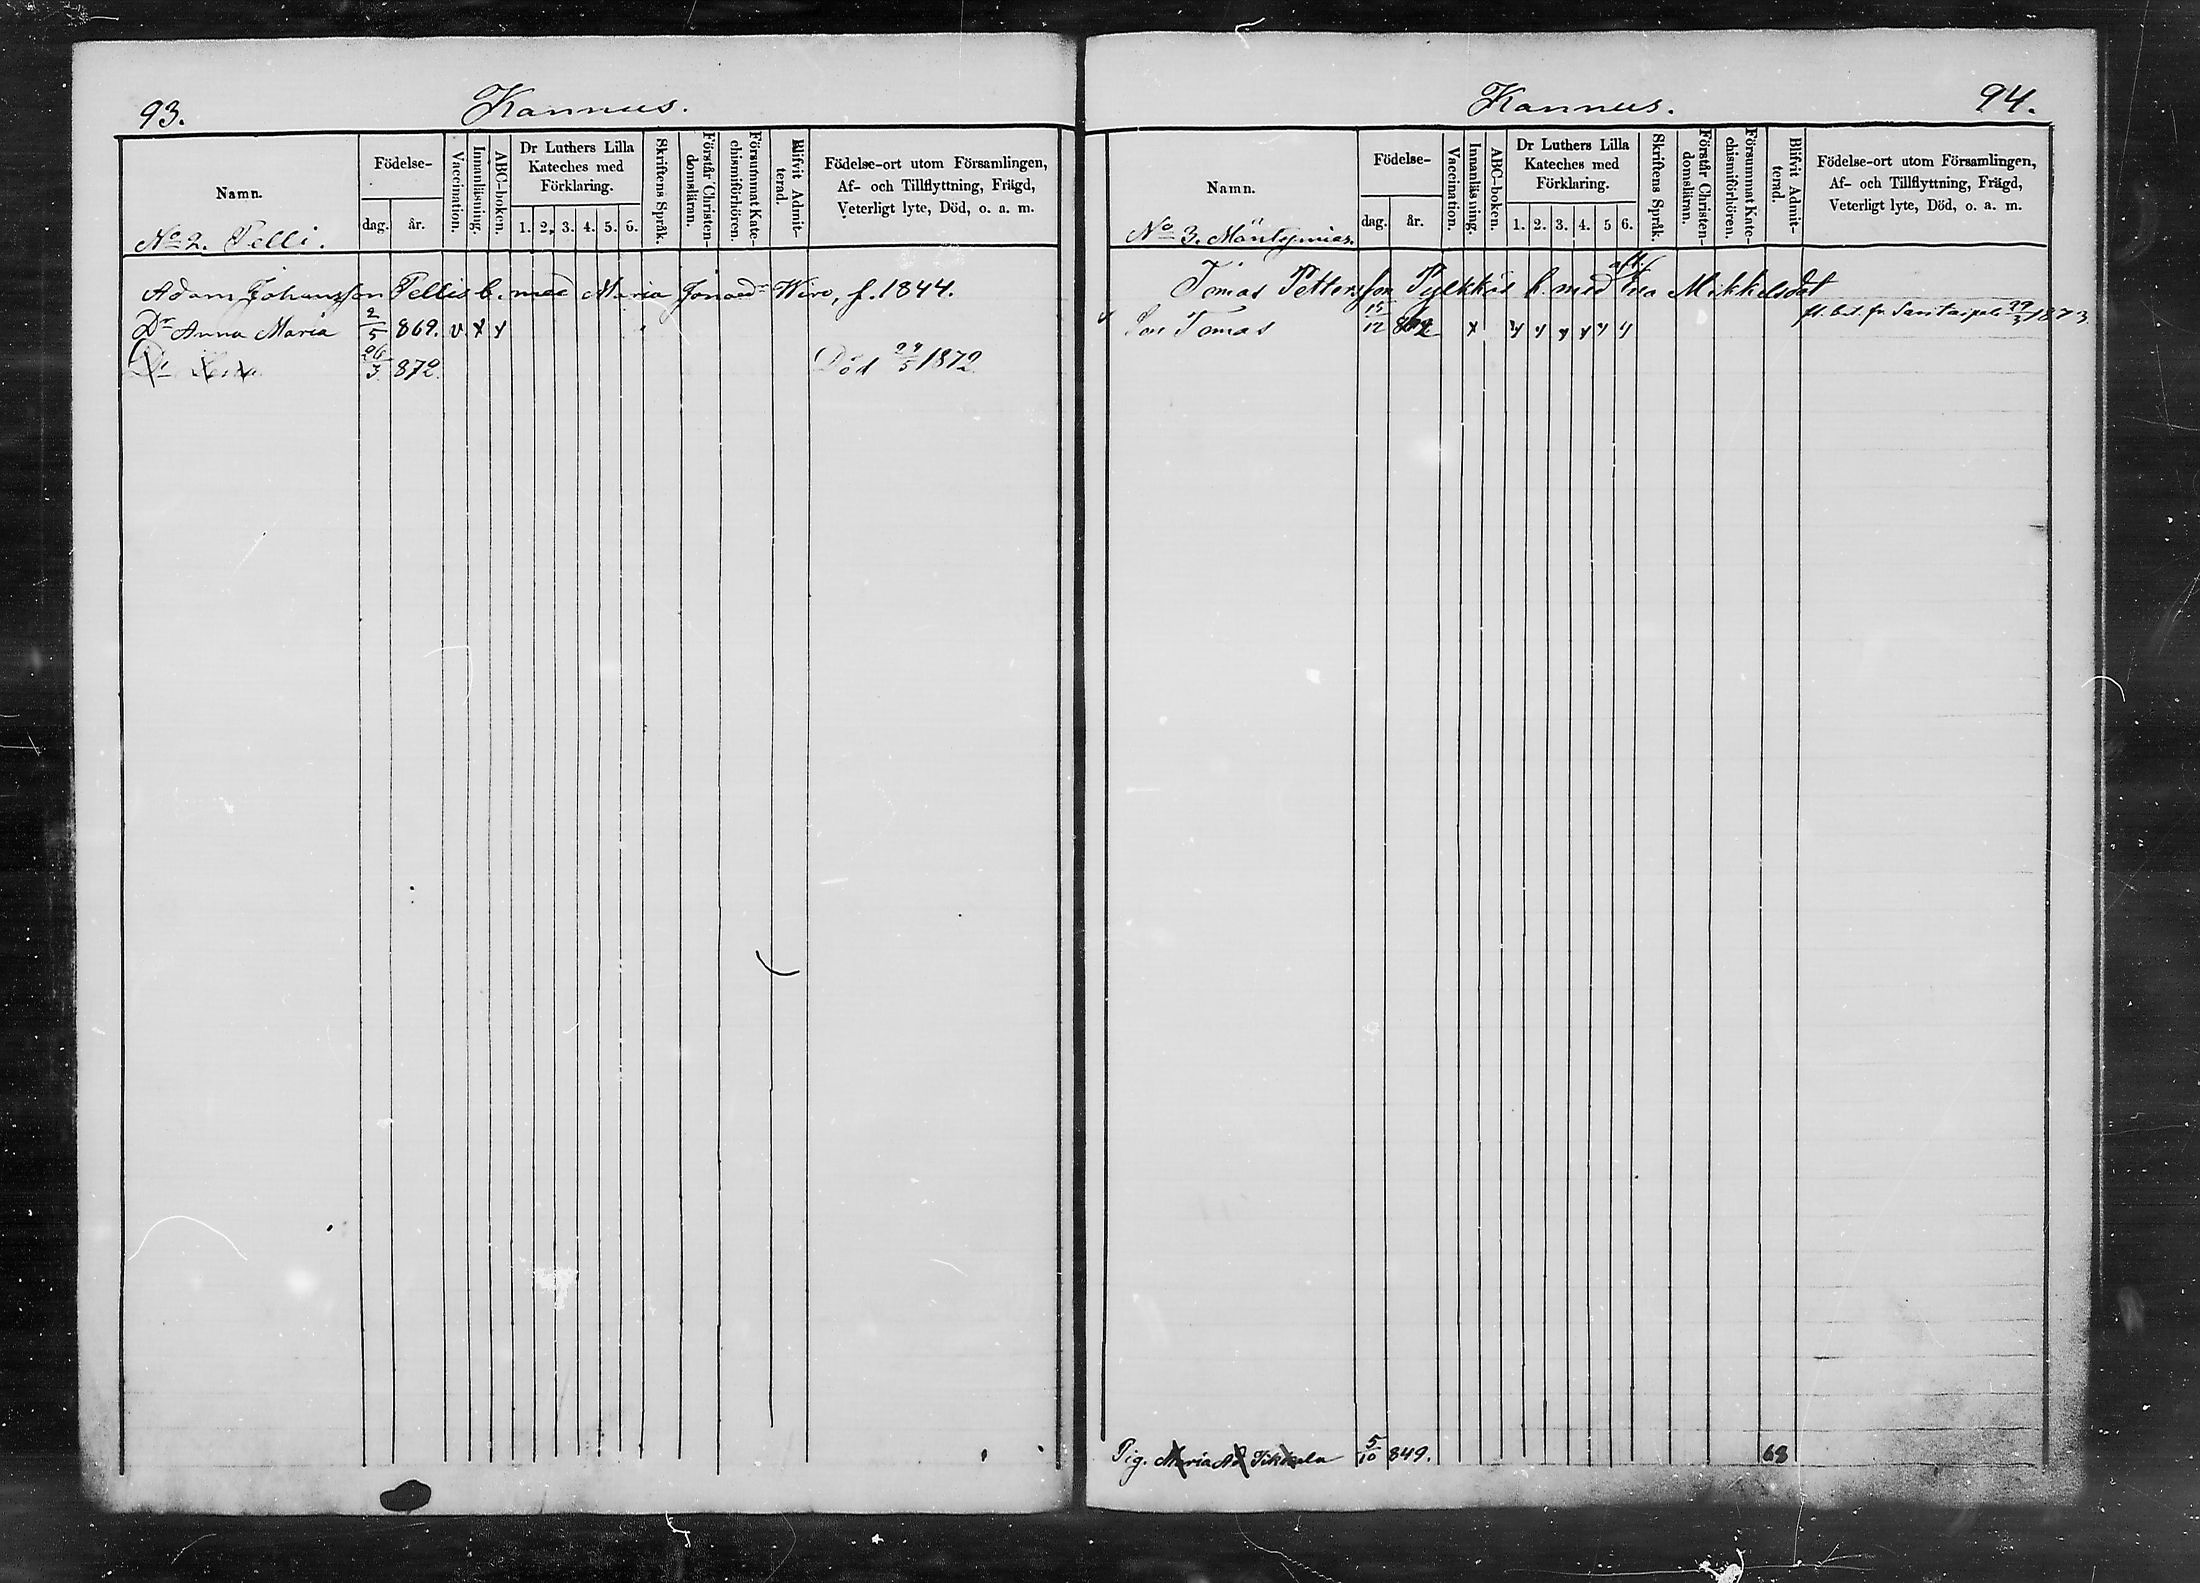 93.
Kannus.
Namn.
Födelse-
dag.
år.
Vaccination.
Innanläsning.
ABC-boken.
Dr Luthers Lilla
Kateches med
Förklaring.
1. 2. 3. 4. 5. 6.
Skriftens Språk.
Förstår Christen-
domsläran.
Försummat Kate-
chismiförhören.
Blifvit Admit-
terad.
Födelse-ort utom Församlingen,
Af- och Tillflyttning, Frägd,
Veterligt lyte, Död, o. a. m.
No 2. Pelli.
Adam Johansson Pellis b. med Maria Jonasdr Wiro, f. 1844.
Dr Anna Maria 2/5 869. v. x x
Dr 26/3 872. Död 1872
Kannus.
94.
Namn.
Födelse-
dag.
år.
Vaccination.
Innanläsning.
ABC-boken.
Dr Luthers Lilla
Kateches med
Förklaring.
1. 2. 3. 4. 5 6.
Skriftens Språk.
Förstår Christen-
domsläran.
Försummat Kate-
chismiförhören.
Blifvit Admit-
terad.
Födelse-ort utom Församlingen,
Af- och Tillflyttning, Frägd,
Veterligt lyte, Död, o. a. m.
No 3.
Tomas Petterson Pylkkäs b. med Eva Mikkelsdot
Son Tomas 15/12 x 1873.
Pig. Maria 5/10 849. 68